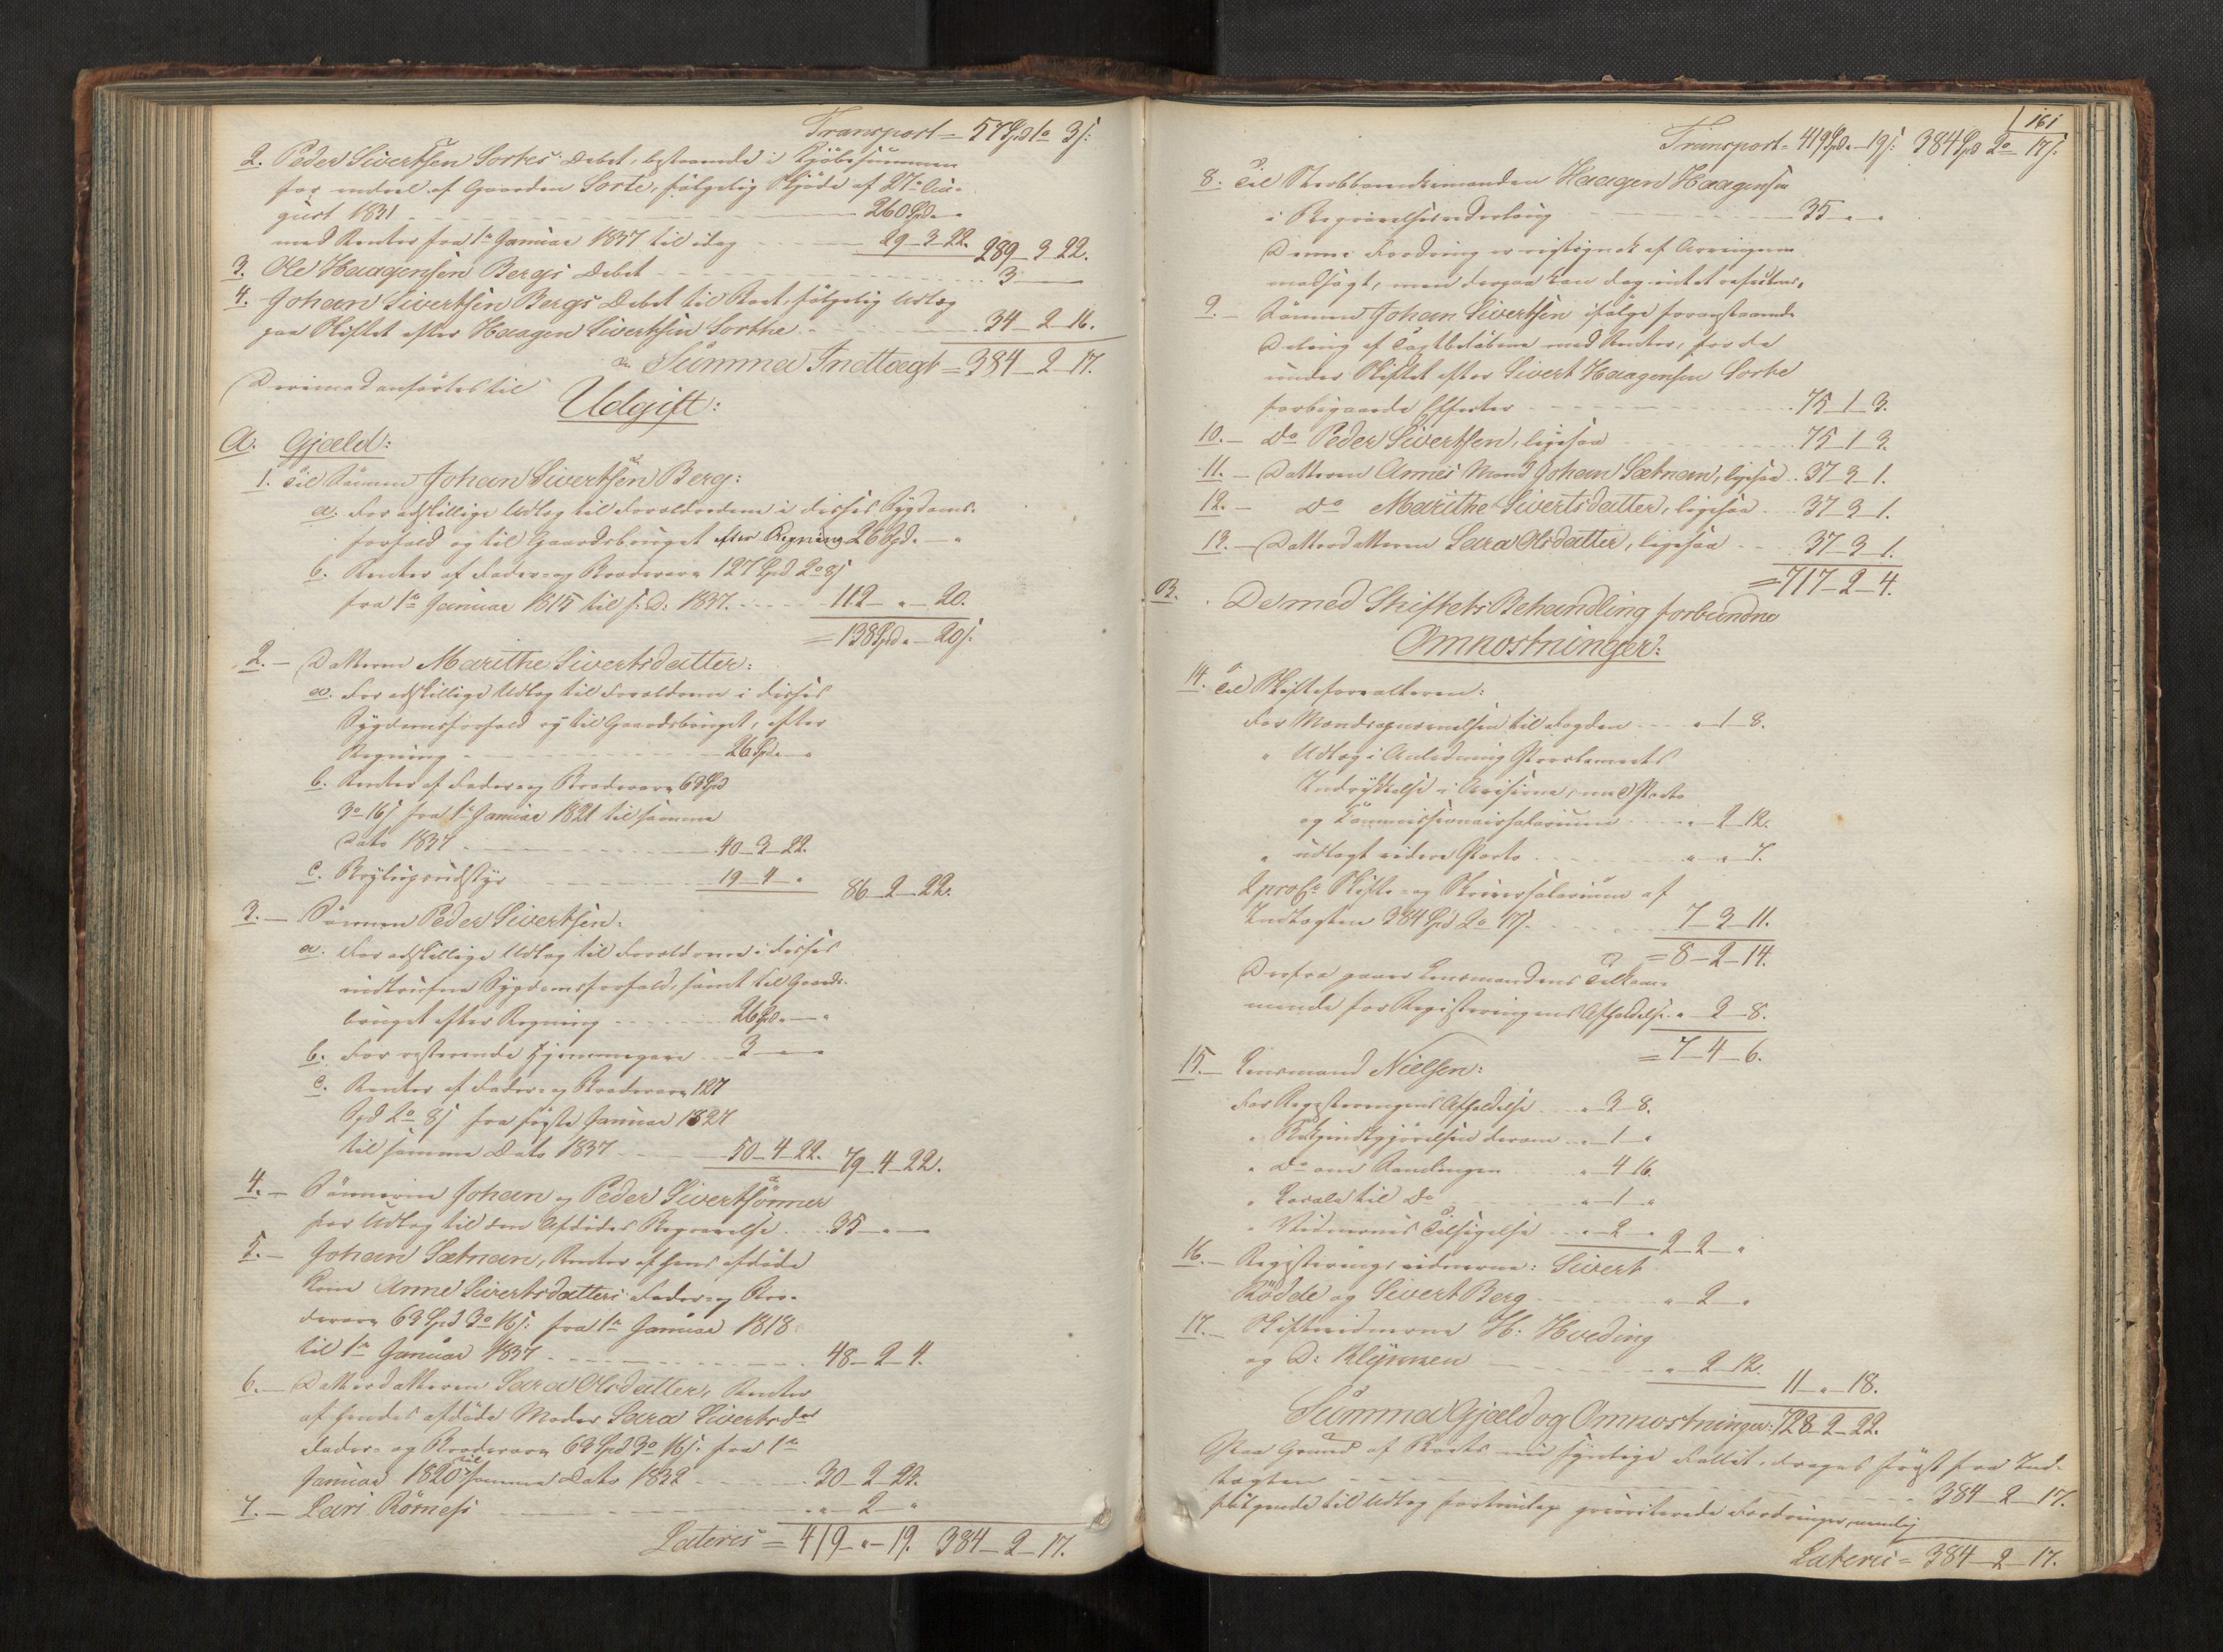 Transport = 57 Spd 1 o 3 s:
2. Peder Sivertsen Sortes Debet, bestaaende i Kjöbesummen
for endeel af Gaarden Sorte, fölgelig Skjöde af 27de Au-
gust 1831 - 260 Spd - "
med Renter fra 1ste Januar 1837 til idag - 29 - 3 - 22. 289 - 3 - 22.
3. Ole Haagensen Bergs Debet - 3 -
4. Johan Sivertsen Bergs Debet til Boet, fölgelig Udlæg
paa Skiftet efter Haagen Sivertsen Sorthe - 34 - 2 - 16.
Summa Indtægt = 384 - 2 - 17.
Derimod anföres til
Udgift:
A. Gjæld:
1. Til Sönnen Johan Sivertsen Berg:
a. For adskillige Udlæg til Forældrene i disses Sygdoms-
forfald og til Gaardsbruget efter Regning 26 Spd. - "
b. Renter af Fader- og Broderarv 127 Spd 2 o 8 s
fra 1ste Januar 1815 til s: D: 1837. - 112 - " - 20.
= 138 Spd " - 20 s:
2. - Datteren Marithe Sivertsdatter:
a. For adskillige Udlæg til Forældrene i disses
Sygdomsforfald og til Gaardsbruget, efter
Regning - 26 Spd. - "
b. Renter af Fader- og Broderarv 63 Spd
3 o 16 s fra 1ste Januar 1821 til samme
Dato 1837 - 40 - 3 - 22.
c. Bryllupsudstyr - 19 - 4 - " 86 - 2 - 22.
3. - Sönnen Peder Sivertsen:
a. For adskillige Udlæg til Forældrene i disses
indtrufne Sygdomsforfald, samt til Gaards-
bruget efter Regning - 26 Spd. - "
b. For resterende Hjemmegave - 3 - "
c. Renter af Fader- og Broderarv 127
Spd 2 o 8 s fra förste Januar 1827
til samme Dato 1837 - 50 - 4 - 22. 79 - 4 - 22.
4. - Sönnerne Johan og Peder Sivertsönner
for Udlæg til den Afdödes Begravelse - 35 - " - "
5. - Johan Sætnan, Renter af hans afdöde
Kone Anne Sivertsdatters Fader- og Bro-
derarv 63 Spd 3 o 16 s: fra 1ste Januar 1818
til 1ste Januar 1837 - 48 - 2 - 4.
6. - Datterdatteren Sara Olsdatter, Renter
af hendes afdöde Moder Sara Sivertsdrs
Fader- og Broderarv 63 Spd 3 o 16 s: fra 1ste
Januar 1820 til samme Dato 1832 - 30 - 2 - 22.
7. - Lars Rörnesi - " - 2 - "
Lateris = 419 - " - 19. 384 - 2 - 17.
161
Transport = 419 Spd. " - 19 s: 384 Spd 2 o 17 s.
8. Til Sterbboendemanden Haagen Haagensen
i Begravelsesudlæg - 35 - " - "
Denne Fordring er vistnok af Arvingerne
modsagt, men derpaa kan dog intet reflecteres,
9. - Sönnen Johan Sivertsen ifölge foranstaaende
Deling af Taxtbelöbene med Renter, for de
under Skiftet efter Sivert Haagensen Sorte
forbigaaede Effecter - 75 - 1 - 3.
10. - do Peder Sivertsen, ligesaa - 75 - 1 - 3.
11. - Datteren Annes Mand Johan Sætnan, ligesaa - 37 - 3 - 1.
12. - do Marithe Sivertsdatter, ligesaa - 37 - 3 - 1.
13. - Datterdatteren Sara Olsdatter, ligesaa - 37 - 3 - 1.
= 717 - 2 - 4.
B. De med Skiftets Behandling forbundne
Omkostninger:
14. Til Skifteforvalteren:
For Mandsopnævnelsen til Fogden - " - 1 - 8.
" Udlæg i Anledning Proclamets
Indrykkelse i Aviserne, med Porto
og Commissionairsalarium - " - 2 - 12.
" udlagt videre Porto - " - " - 7.
2 pro Ct. Skifte- og Skriversalarium af
Indtægten 384 Spd 2 o 17 s. - 7 - 3 - 11.
= 8 - 2 - 14.
Derfra gaaer Lensmandens Tilkom-
mende for Registreringens Afholdelse - " - 3 - 8.
= 7 - 4 - 6.
15. - Lensmand Nielsen:
For Registreringens Afholdelse - " - 3 - 8.
" Bekjendtgjörelsen derom - " - 1 - "
" do om Samlingen - " - 4 - 16.
" Locale til do - " - 1 - "
" Vidnernes Tilsigelse - " - 2 - " 2 - 2 - "
16. - Registreringsvidnerne: Sivert
Rödde og Sivert Berg - " - 2 - "
17. - Skiftevidnerne H: Hveding
og D: Klykken - " - 2 - 12. 11 - " - 18.
Summa Gjæld og Omkostninger: 728 - 2 - 22.
Paa Grund af Boets nu synlige Fallit, drages först fra Ind-
tægten - 384 - 2 - 17.
fölgende til Udlæg fortrinlig prioriterede Fordringer, nemlig
Lateris = 384 - 2 - 17.